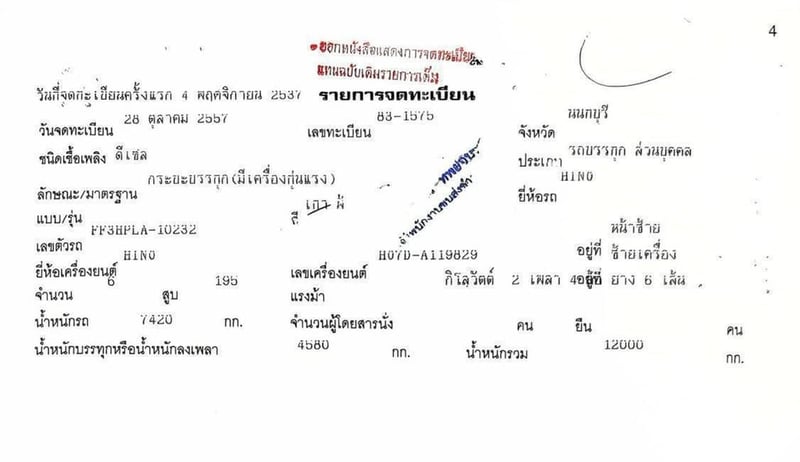 4
ออกหนังสือแสดงการจดทะเบียน
แทนฉบับเดิมรายการเต็ม
วันที่จดทะเบียนครั้งแรก 4 พฤศจิกายน 2537 รายการจดทะเบียน
วันจดทะเบียน 28 ตุลาคม 2557 เลขทะเบียน 83-1575 จังหวัด นนทบุรี
ชนิดเชื้อเพลิง ดีเซล ประเภท รถบรรทุก ส่วนบุคคล
ลักษณะ/มาตรฐาน กระบะบรรทุก(มีเครื่องทุ่นแรง) ยี่ห้อรถ HINO
แบบ/รุ่น สี เทา
เลขตัวรถ FF3HPLA-10232 อยู่ที่ หน้าซ้าย
ยี่ห้อเครื่องยนต์ HINO เลขเครื่องยนต์ H07D-A119829 อยู่ที่ ซ้ายเครื่อง
จำนวน 6 สูบ 195 แรงม้า กิโลวัตต์ 2 เพลา 4 ล้อ ยาง 6 เส้น
น้ำหนักรถ 7420 กก. จำนวนผู้โดยสารนั่ง คน ยืน คน
น้ำหนักบรรทุกหรือน้ำหนักลงเพลา 4580 กก. น้ำหนักรวม 12000 กก.